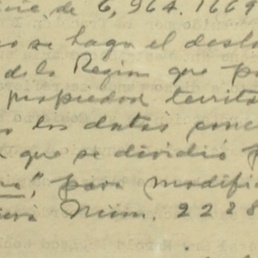 de 6,964.1669
se haga el desl
de la Region que p
propiedad territ
los datos conc
que se dividió p
para modifi
Núm. 2228